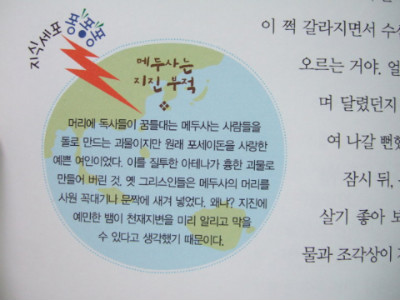 지식세포 쫑쫑쫑
메두사는
지진 부적
머리에 독사들이 꿈틀대는 메두사는 사람들을
돌로 만드는 괴물이지만 원래 포세이돈을 사랑한
예쁜 여인이었다. 이를 질투한 아테나가 흉한 괴물로
만들어 버린 것. 옛 그리스인들은 메두사의 머리를
사원 꼭대기나 문짝에 새겨 넣었다. 왜냐? 지진에
예민한 뱀이 천재지변을 미리 알리고 막을
수 있다고 생각했기 때문이다.
이 쩍 갈라지면서 수
오르는 거야. 얼
며 달렸던지
여 나갈 뻔했
잠시 뒤,
살기 좋아 보
물과 조각상이